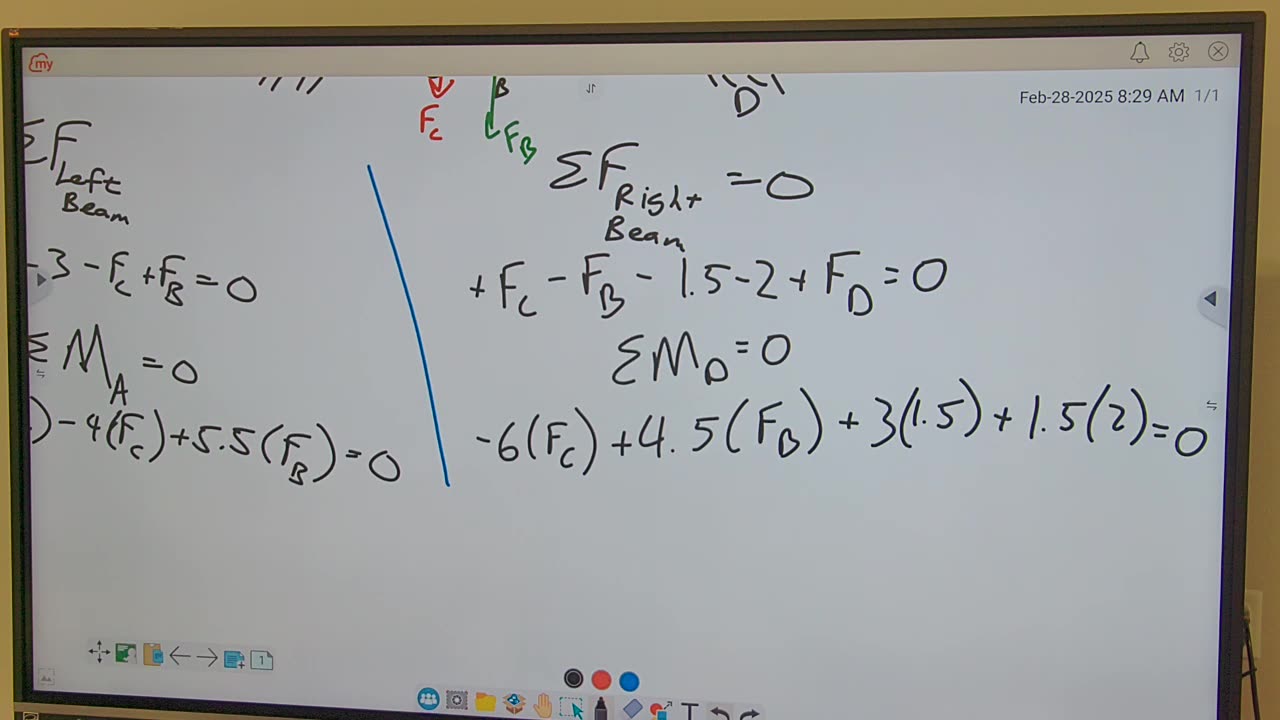 my
Feb-28-2025 8:29 AM 1/1
F_C
B
F_B
D
ΣF Left Beam
-3 - F_C + F_B = 0
ΣM_A = 0
) - 4(F_C) + 5.5(F_B) = 0
ΣF Right Beam = 0
+ F_C - F_B - 1.5 - 2 + F_D = 0
ΣM_D = 0
-6(F_C) + 4.5(F_B) + 3(1.5) + 1.5(2) = 0
1
T